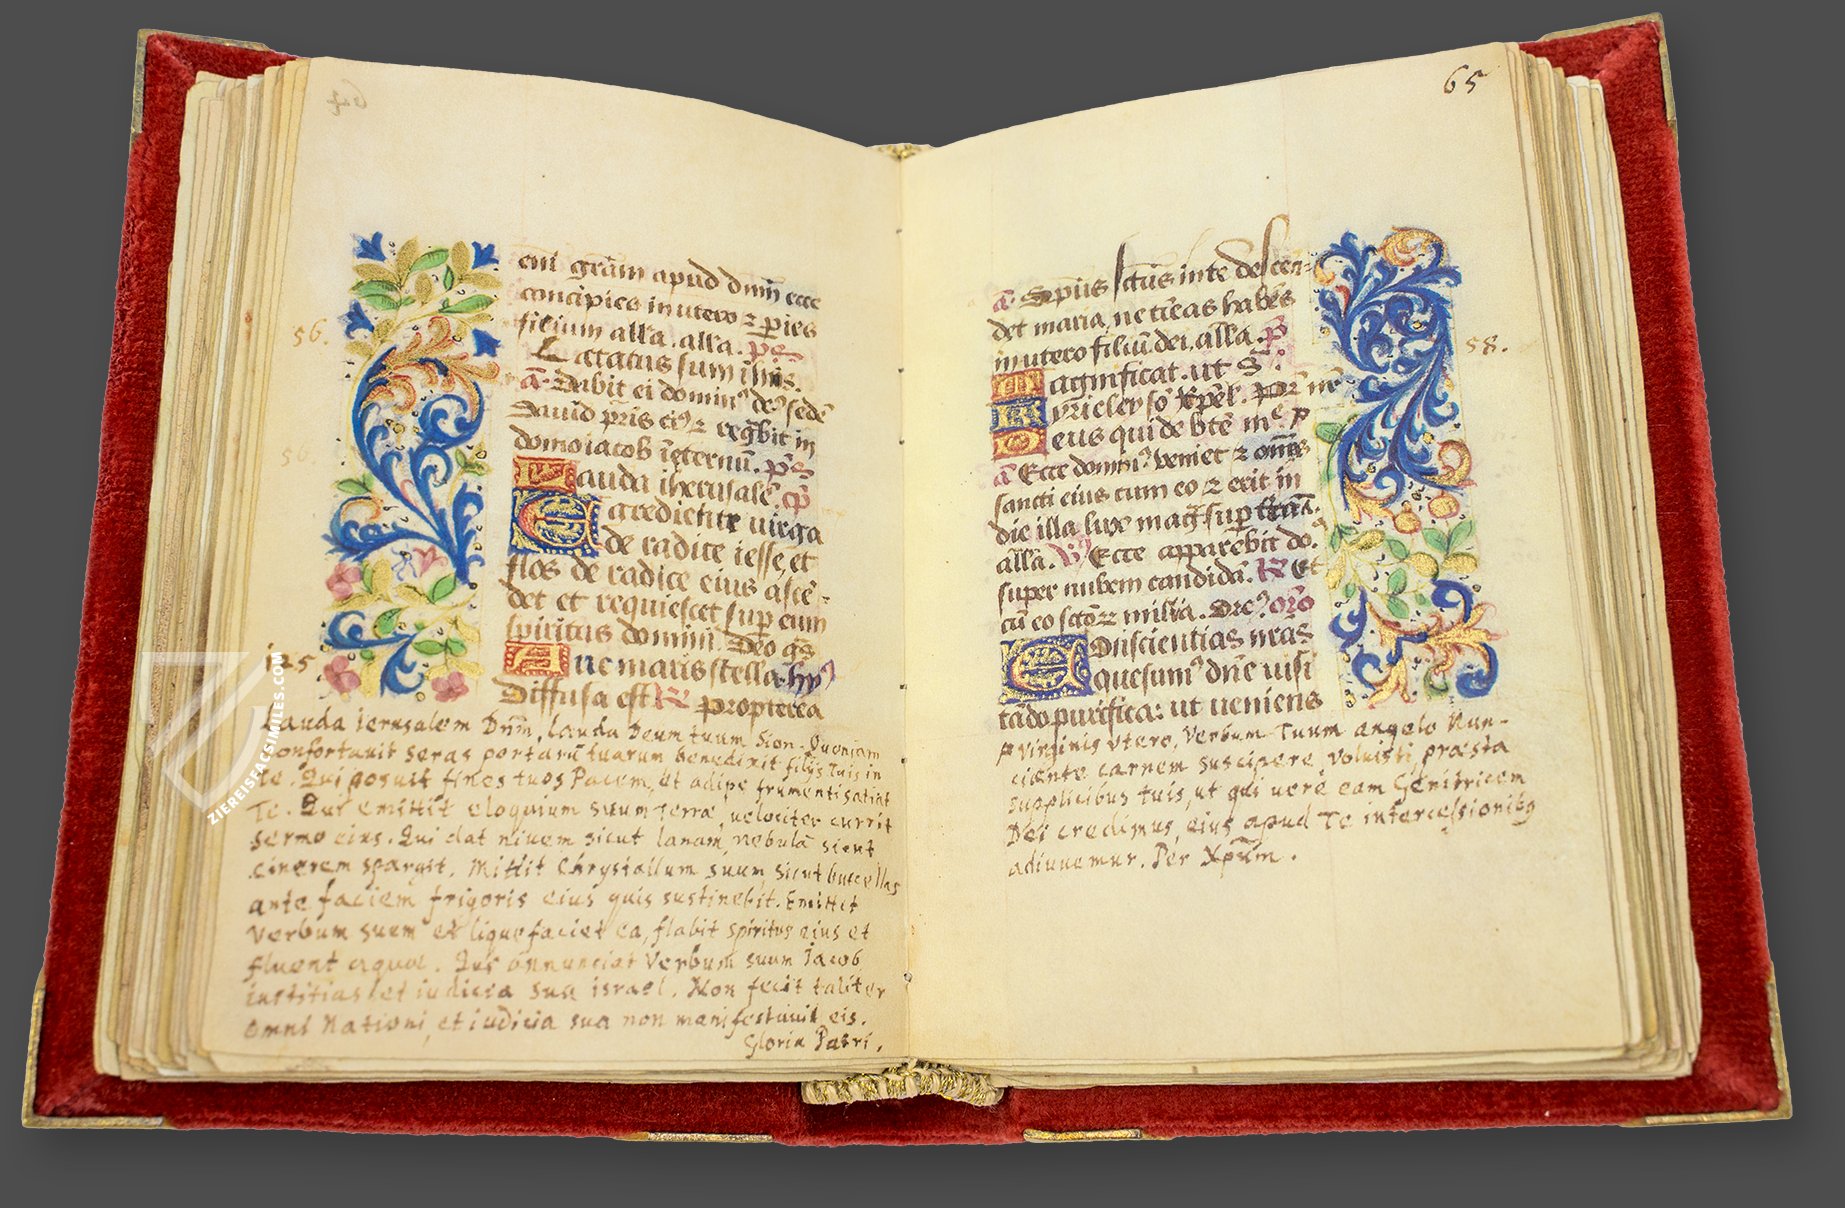 56.
eni grãm apud dnm̃ ecce
concipies in utero ⁊ ꝑies
filium alla. alla. ps
Letatus sum i hiis.
a. Dabit ei dominꝰ deꝰ sedẽ
Dauid pris eiꝰ ⁊ regñbit in
domo iacob ĩ eternũ. ps
Lauda iherusalẽ cp̃
Egredietur uirga
de radice iesse, et
flos de radice eius ascẽ-
det et requiescet sup eum
spiritus domini. Deo gs̃
Aue maris stella. hyꝰ
Diffusa est R propterea
Lauda ierusalem Dñm, lauda Deum tuum Sion. Quoniam
confortauit seras portarũ tuarum benedixit filijs tuis in
te. Qui posuit fines tuos Pacem, et adipe frumenti satiat
Te. Qui emittit eloquium suum Terræ, uelociter currit
sermo eius. Qui dat niuem sicut lanam, nebulã sicut
cinerem spargit. Mittit Chrystallum suum sicut buccellas
ante faciem frigoris eius quis sustinebit. Emittet
Verbum suum et liquefaciet ea, flabit spiritus eius et
fluent aquæ. Qui annunciat Verbum suum Iacob
iustitias et iudicia sua israel. Non fecit taliter
omni Nationi, et iudicia sua non manifestauit eis.
Gloria Patri.
65
58.
a. Sp̃us sctũs in te descen-
det maria, ne timeas habẽs
in utero filiũ dei. alla. p̃
Magnificat. ut S.
Kyrieleyso xp̃el. Pr̃ nr̃
Deus qui de btẽ mᵉ p
a Ecce dominꝰ veniet ⁊ omẽs
sancti eius cum eo ⁊ erit in
die illa lux mag̃ sup terrã.
alla. V Ecce apparebit do.
super nubem candidã. R Et
cũ eo sctõꝝ milia. Dñeꝰ oro
Conscientias nr̃as
quesumꝰ dñe uisi
tãdo purifica: ut ueniens
ꝑ Virginis vtero, Verbum Tuum angelo Nun-
ciante carnem suscipere voluisti, præsta
supplicibus tuis, ut qui uerè eam Genitricem
Dei credimus, eius apud Te intercessionibꝰ
adiuuemur. Per Xp̃um.
ZIEREISFACSIMILES.COM